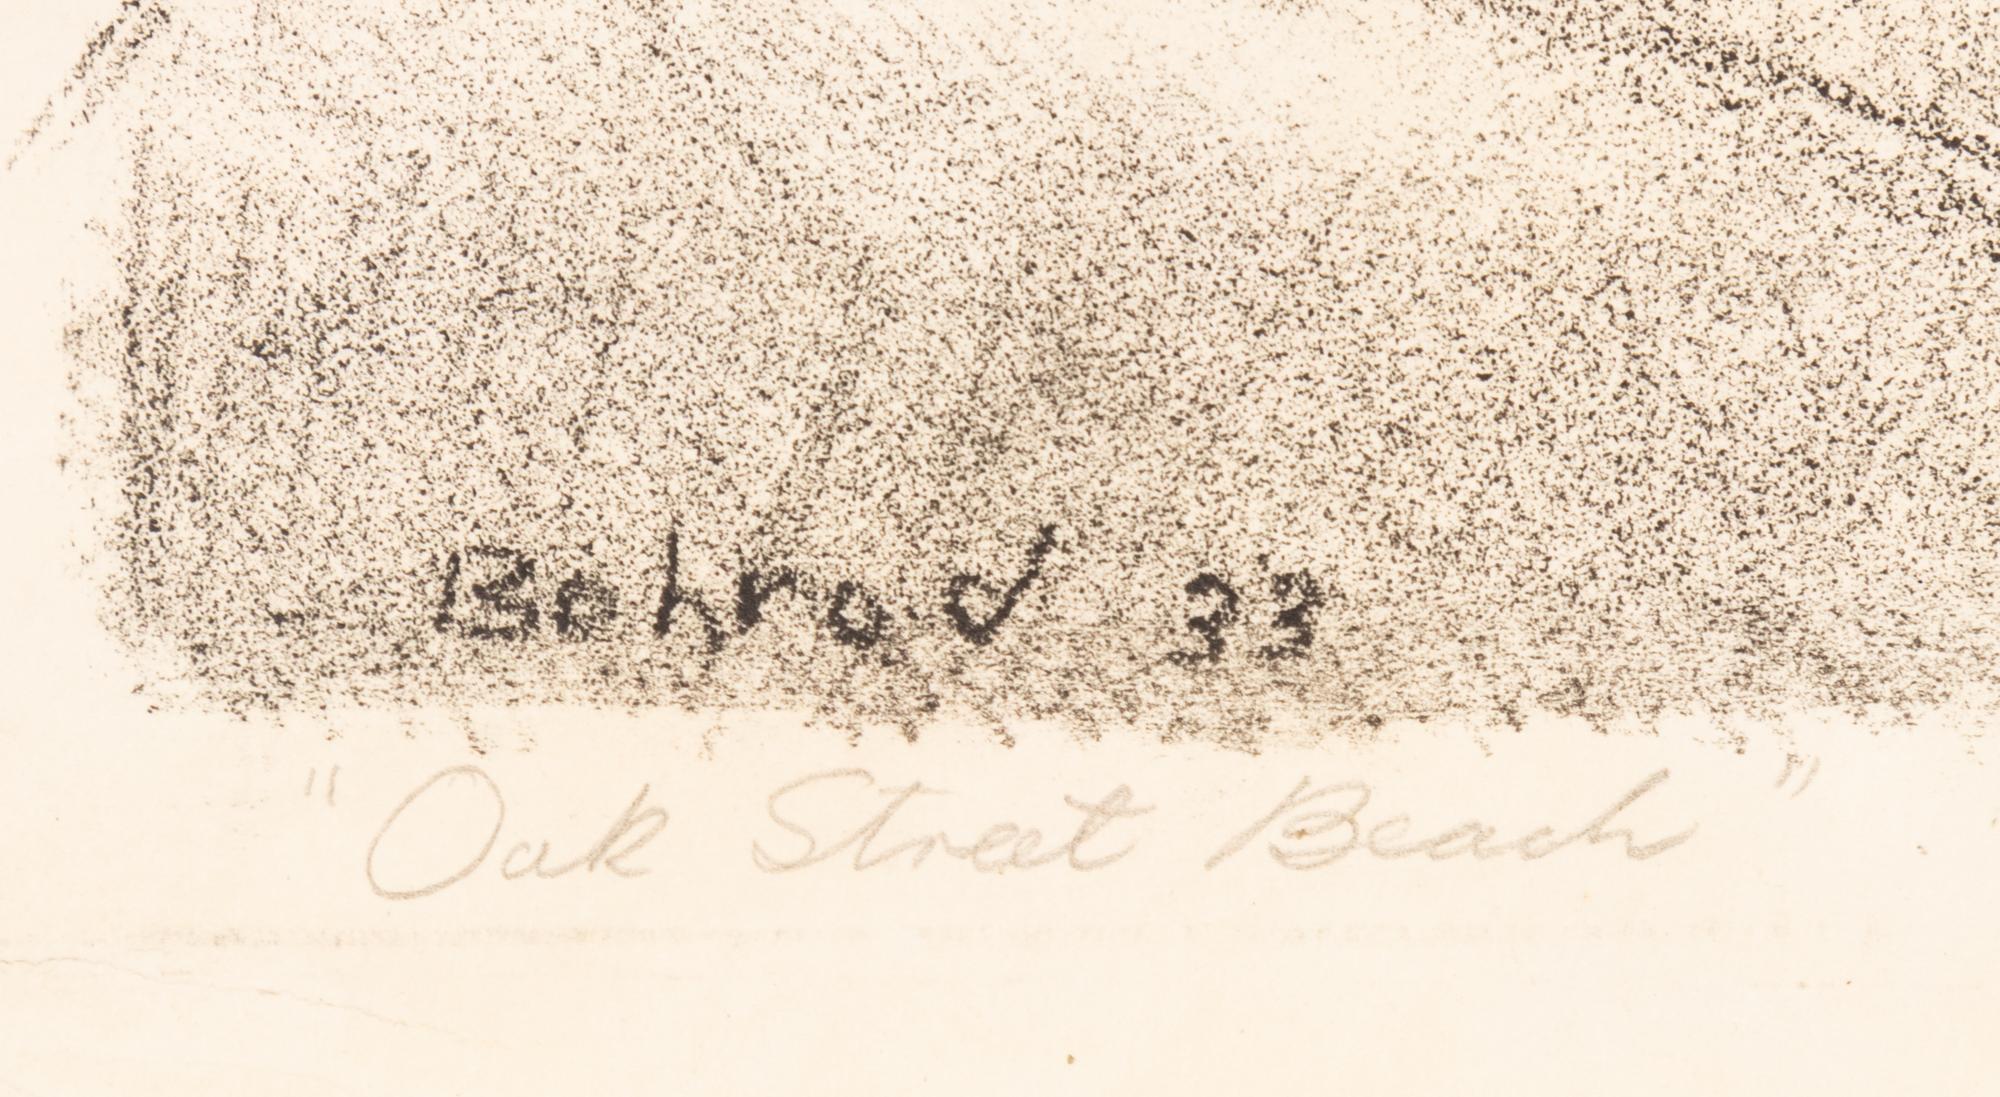 Bohrod 33
"Oak Street Beach"